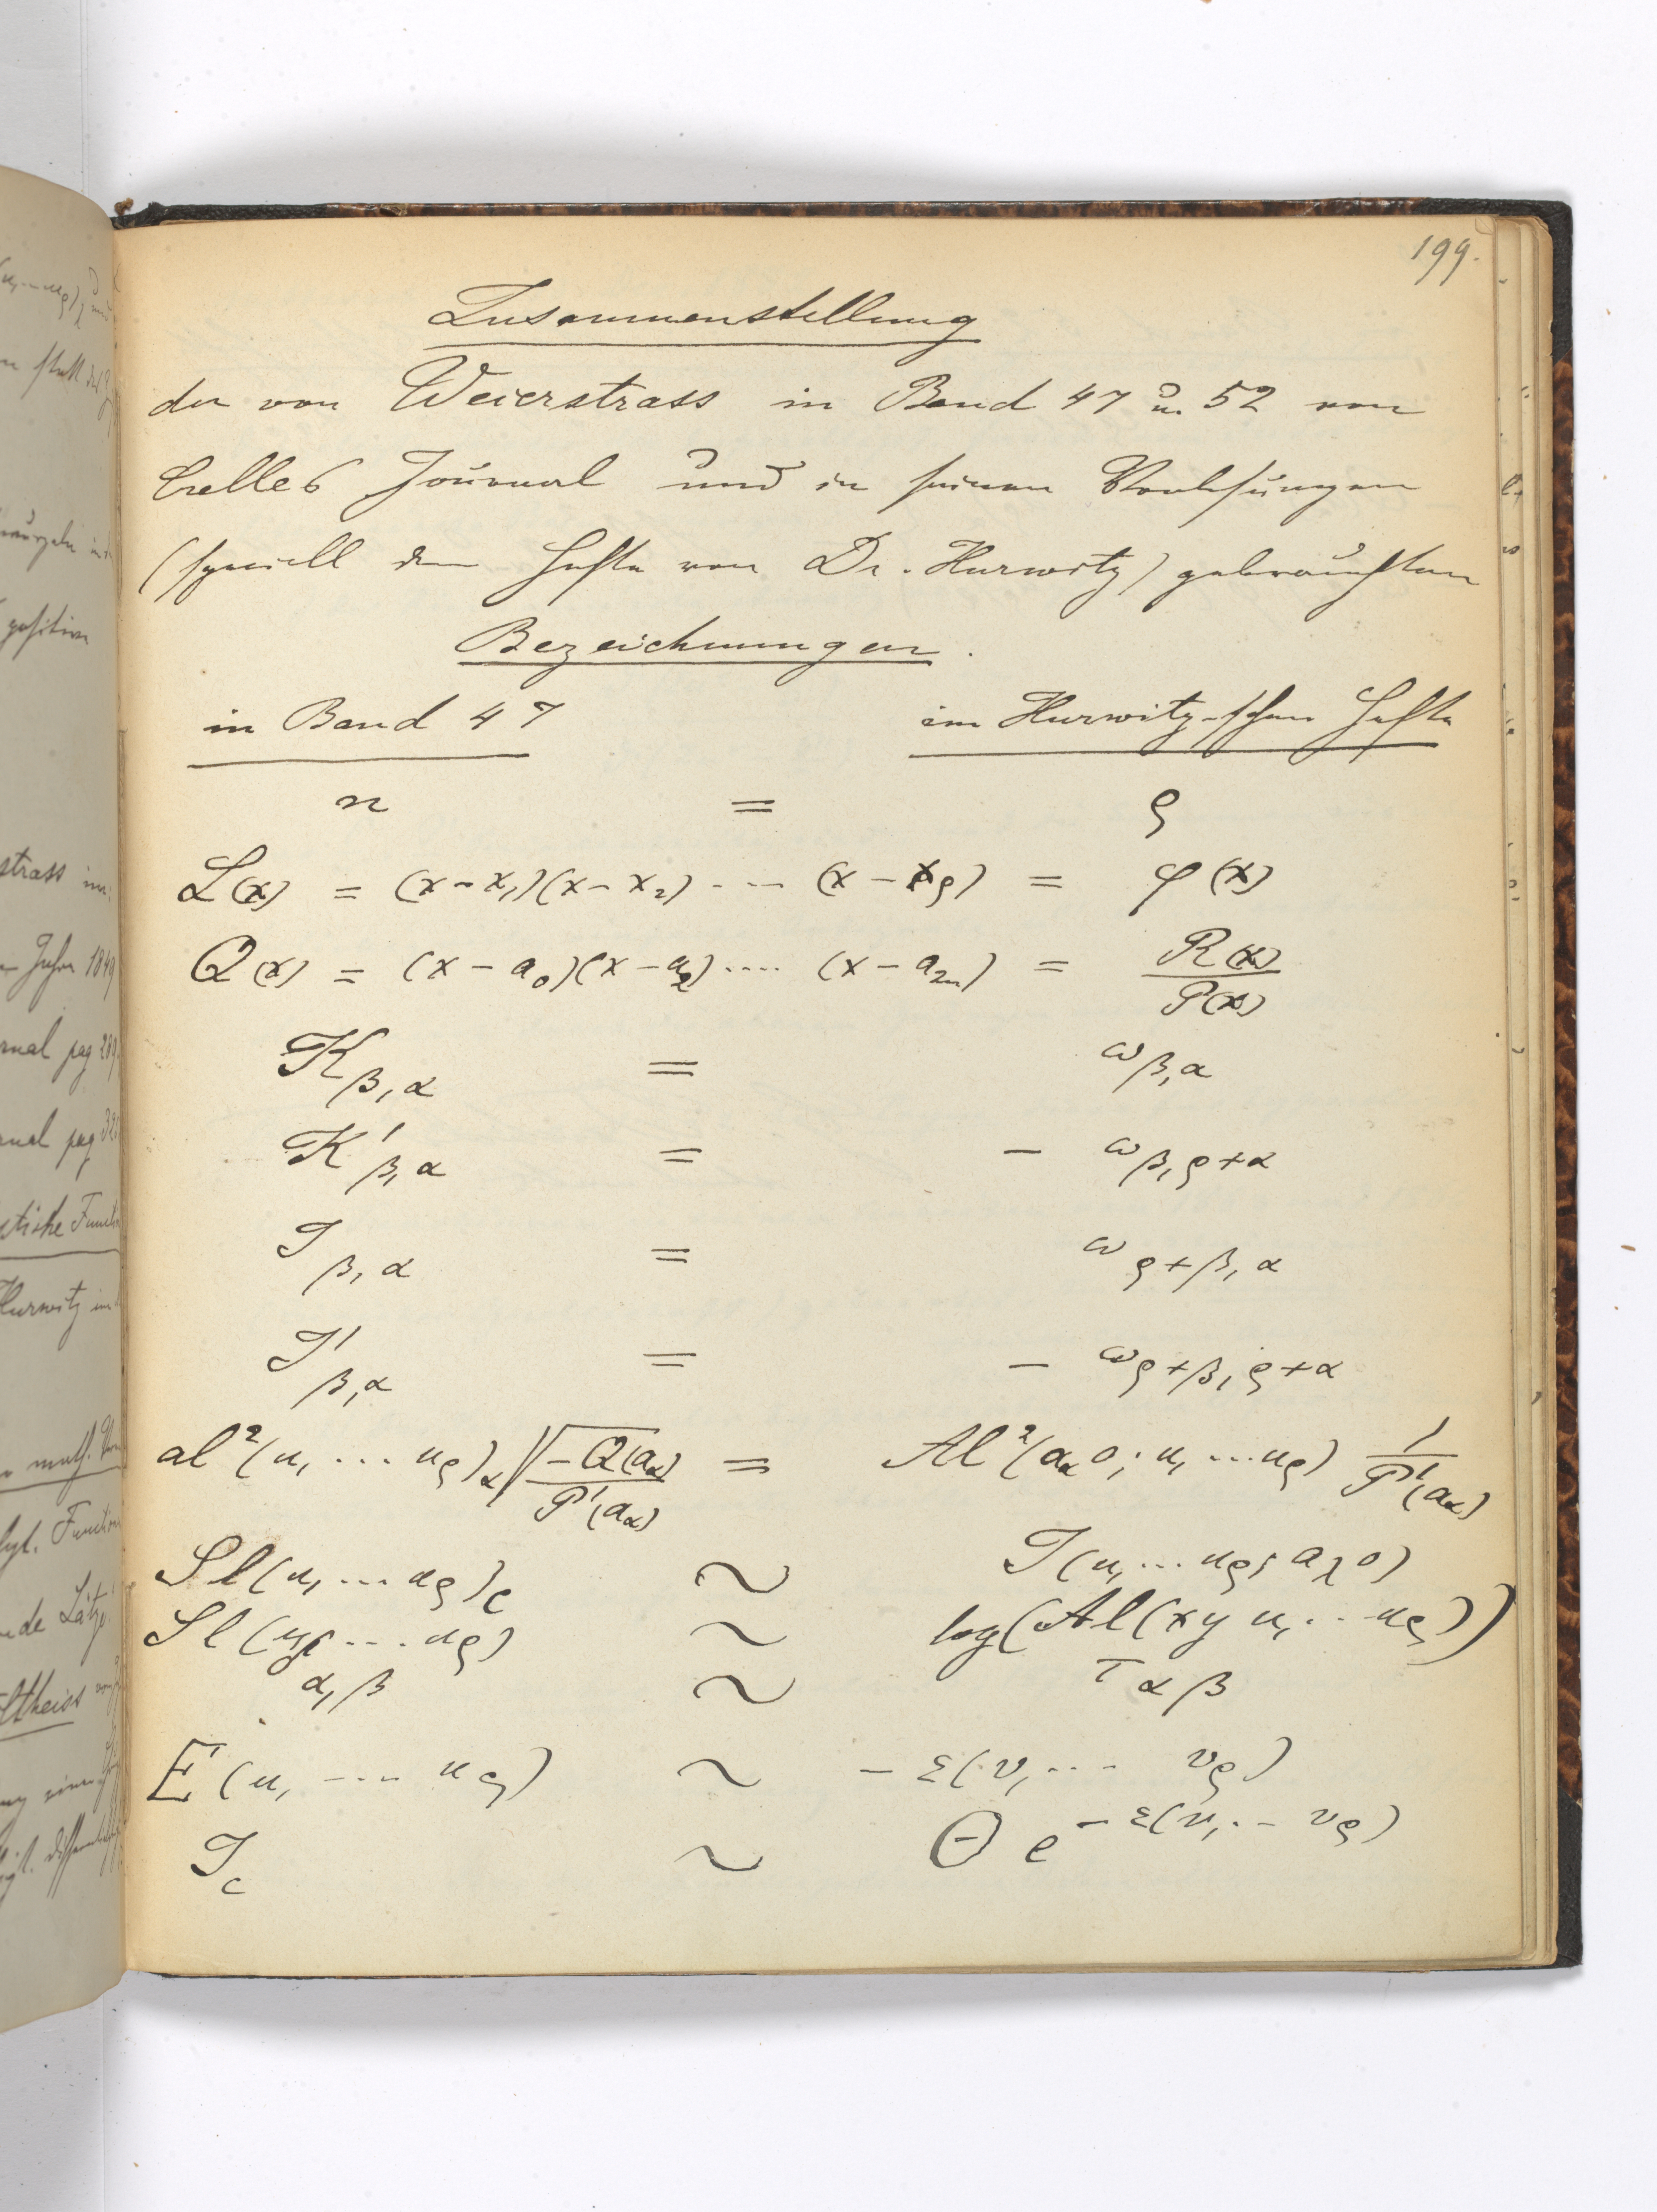 199.
Zusammenstellung
der von Weierstrass in Band 47 u. 52 von
Crelles Journal und in seinen Vorlesungen
(speciell dem Hefte von Dr. Hurwitz) gebrauchten
Bezeichnungen.
in Band 47 im Hurwitz-schen Hefte
n = ϱ
L(x) = (x-x₁)(x-x₂) ---- (x-x_ϱ) = φ(x)
Q(x) = (x-a₀)(x-a₂) .... (x-a_{2n}) = R(x)/P(x)
K_{β,α} = ω_{β,α}
K'_{β,α} = - ω_{β,ϱ+α}
J_{β,α} = ω_{ϱ+β,α}
J'_{β,α} = - ω_{ϱ+β,ϱ+α}
al²(u₁ ... u_ϱ)_α √(-Q(a_α))/P'(a_α) = Al²(a_α 0; u₁ ... u_ϱ) 1/P'(a_α)
Sl(u₁ ... u_ϱ)_c ~ J(u₁ ... u_ϱ; a_λ 0)
Sl(u₁ ... u_ϱ) ~ log(Al(x y u₁ .. u_ϱ))
α,β ~ τ_{αβ}
E(u₁ ---- u_ϱ) ~ - ε(v₁ ... v_ϱ)
J_c ~ Θ e^{-ε(v₁ .. v_ϱ)}